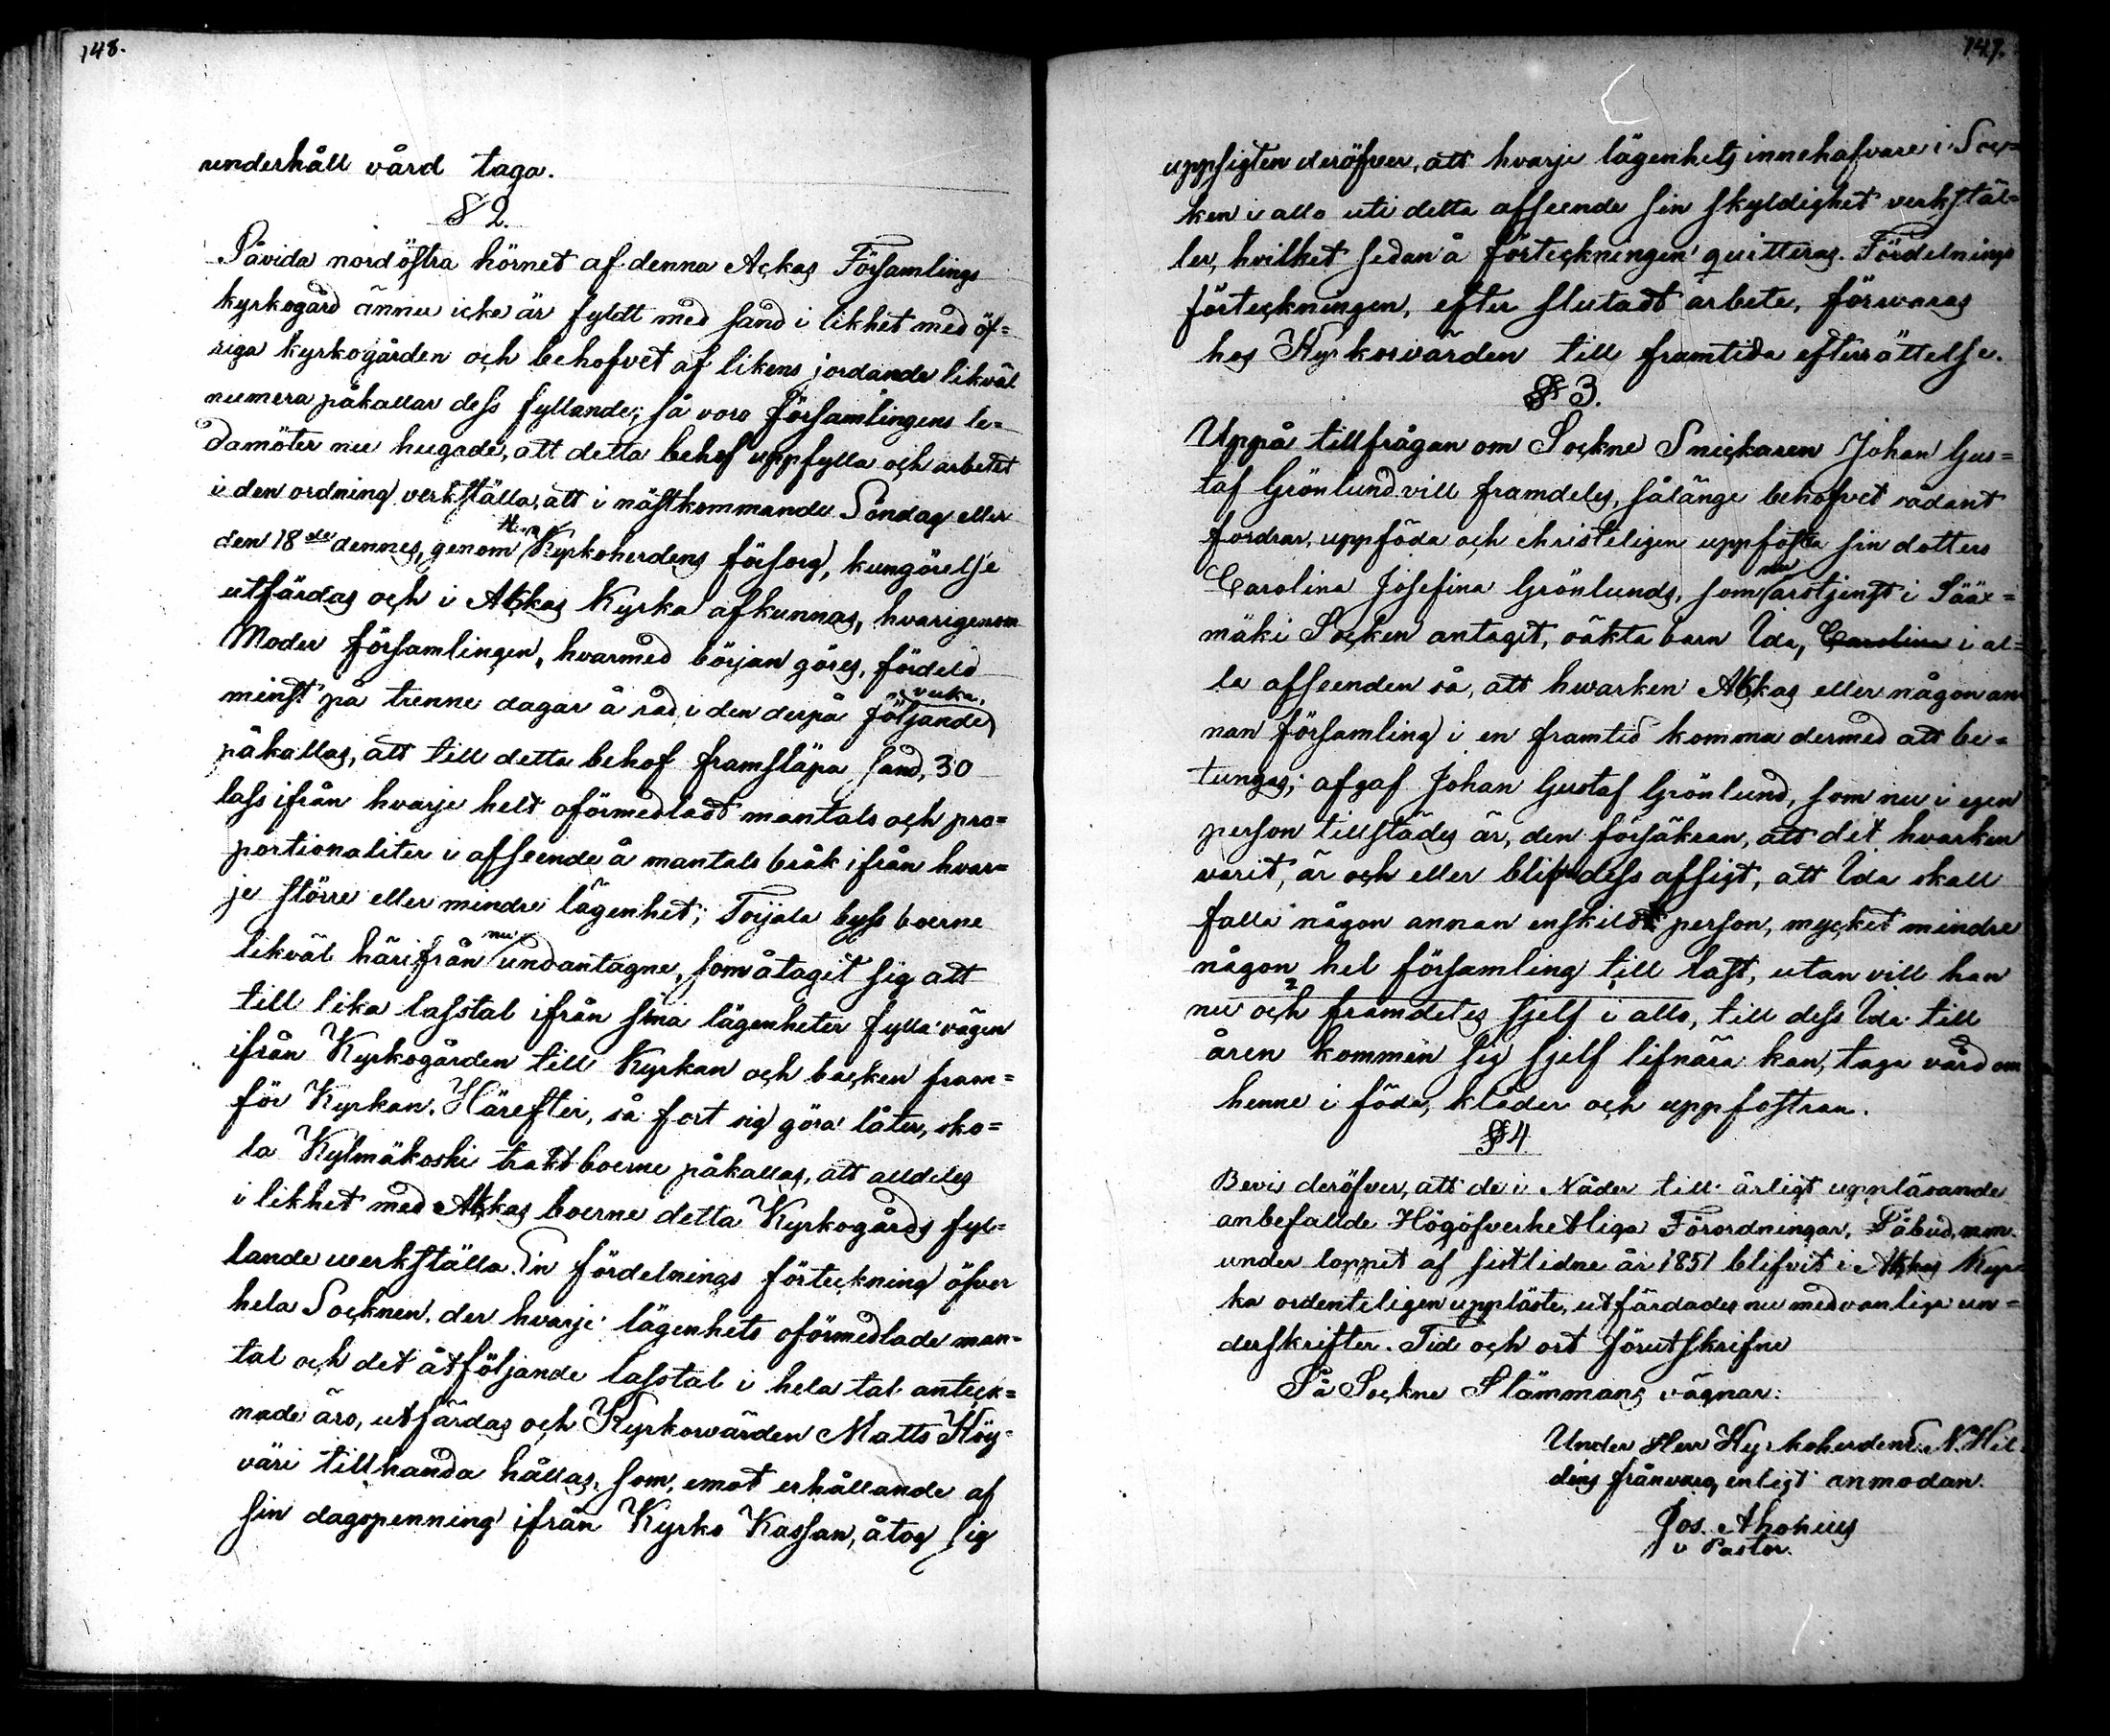 148.
underhåll vård taga.
§ 2.
Såvida nordöstra hörnet af denna Ackas Församlings
kyrkogård ännu icke är fyldt med sand i likhet med öf=
riga kyrkogården och behofvet af likens jordande likväl
numera påkallar dess fyllande; så voro församlingens le=
damöter nu hugade, att detta behof uppfylla och arbetet
i den ordning verkställa, att i nästkommande Söndag eller
den 18de dennes, genom Herr Kyrkoherdens försorg, kungörelse
utfärdas och i Ackas Kyrka afkunnas, hvarigenom
Moder församlingen, hvarmed början göres, fördeld
minst på trenne dagar å rad i den derpå följande vecka,
påkallas, att till detta behof framsläpa sand, 30
lass ifrån hvarje helt oförmedladt mantals och pro=
portionaliter i afseende å mantals bråk ifrån hvar=
je större eller mindre lägenhet; Toijala byss boerne
likväl härifrån nu undantagne, som åtagit sig att
till lika lasstal ifrån sina lägenheter fylla vägen
ifrån Kyrkogården till Kyrkan och backen fram=
för Kyrkan. Härefter, så fort sig göra låter, sko=
la Kylmäkoski trakt boerne påkallas, att alldeles
i likhet med Akkas boerne detta Kyrkogårds fyl=
lande werkställa. En fördelnings förteckning öfver
hela Socknen, der hvarje lägenhets oförmedlade man=
tal och det åtföljande lasstal i hela tal anteck=
nade äro, utfärdas och Kyrkowärden Matts Höy=
väri tillhanda hållas, som, emot erhållande af
sin dagspenning ifrån Kyrko Kassan, åtog sig
149.
uppsigten deröfver, att hvarje lägenhets innehafvare i Soc=
ken i allo uti detta afseende sin skyldighet verkstäl=
ler, hvilket sedan å förteckningen quitteras. Fördelnings
förteckningen, efter slutadt arbete, förwaras
hos Kyrkovärden till framtida efterrättelse.
§ 3.
Uppå tillfrågan om Sockne Snickaren Johan Gus=
taf Grönlund vill framdeles, sålänge behofvet sådant
fordrar, uppföda och christeligen uppfostra sin dotters
Carolina Josefina Grönlunds, som nu årstjenst i Sääx=
mäki Socken antagit, oäkta barn Ida, Carolina i al=
la afseenden så, att hwarken Akkas eller någon an
nan församling i en framtid komma dermed att be=
tungas; afgaf Johan Gustaf Grönlund, som nu i egen
person tillstädes är, den försäkran, att det hvarken
varit, är och eller blifver dess afsigt, att Ida skall
falla någon annan enskild person, mycket mindre
någon hel församling till last, utan vill han
nu och framdeles sjelf i allo, till dess Ida till
åren kommen sig sjelf lifnära kan, taga vård om
henne i föda, kläder och uppfostran.
§ 4
Bevis deröfver, att de i Nåder till årligt uppläsande
anbefallde Högöfverhetliga Förordningar, Påbud, m.m.
under loppet af sistlidne år 1851 blifvit i Akkas Kyr=
ka ordenteligen uppläste, utfärdades nu med vanliga un=
derskrifter. Tid och ort förutskrifne
På Sockne Stämmans vägnar:
Under Herr Kyrkoherden E. N. Hil=
déns frånvaro, enligt anmodan.
Jos. Ahonius
v Pastor.